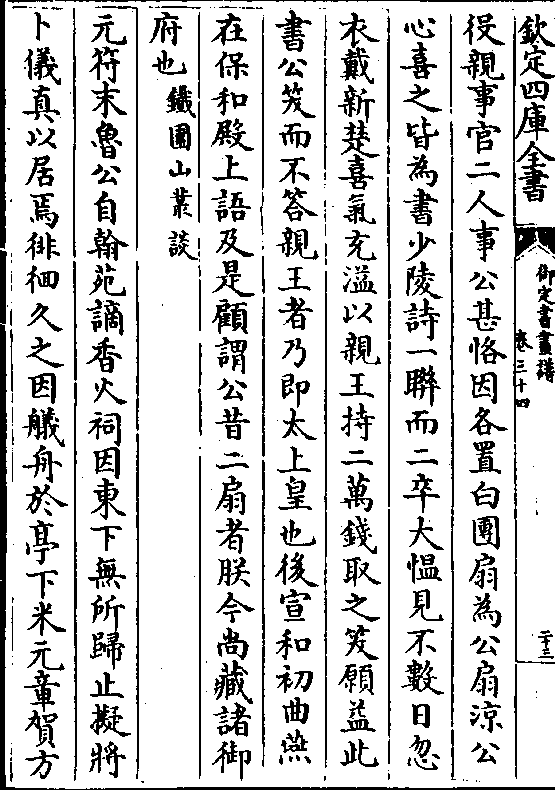 欽定四庫全書
御定書畫譜
卷三十四
二十三
役親事官二人事公甚恪因各置白團扇為公扇涼公
心喜之皆為書少陵詩一聯而二卒大慍見不數日忽
衣戴新楚喜氣充溢以親王持二萬錢取之笑願益此
書公笑而不答親王者乃即太上皇也後宣和初曲燕
在保和殿上語及是顧謂公昔二扇者朕今尚藏諸御
府也鐵圍山叢談
元符末魯公自翰苑謫香火祠因東下無所歸止擬將
卜儀真以居焉徘徊久之因艤舟於亭下米元章賀方